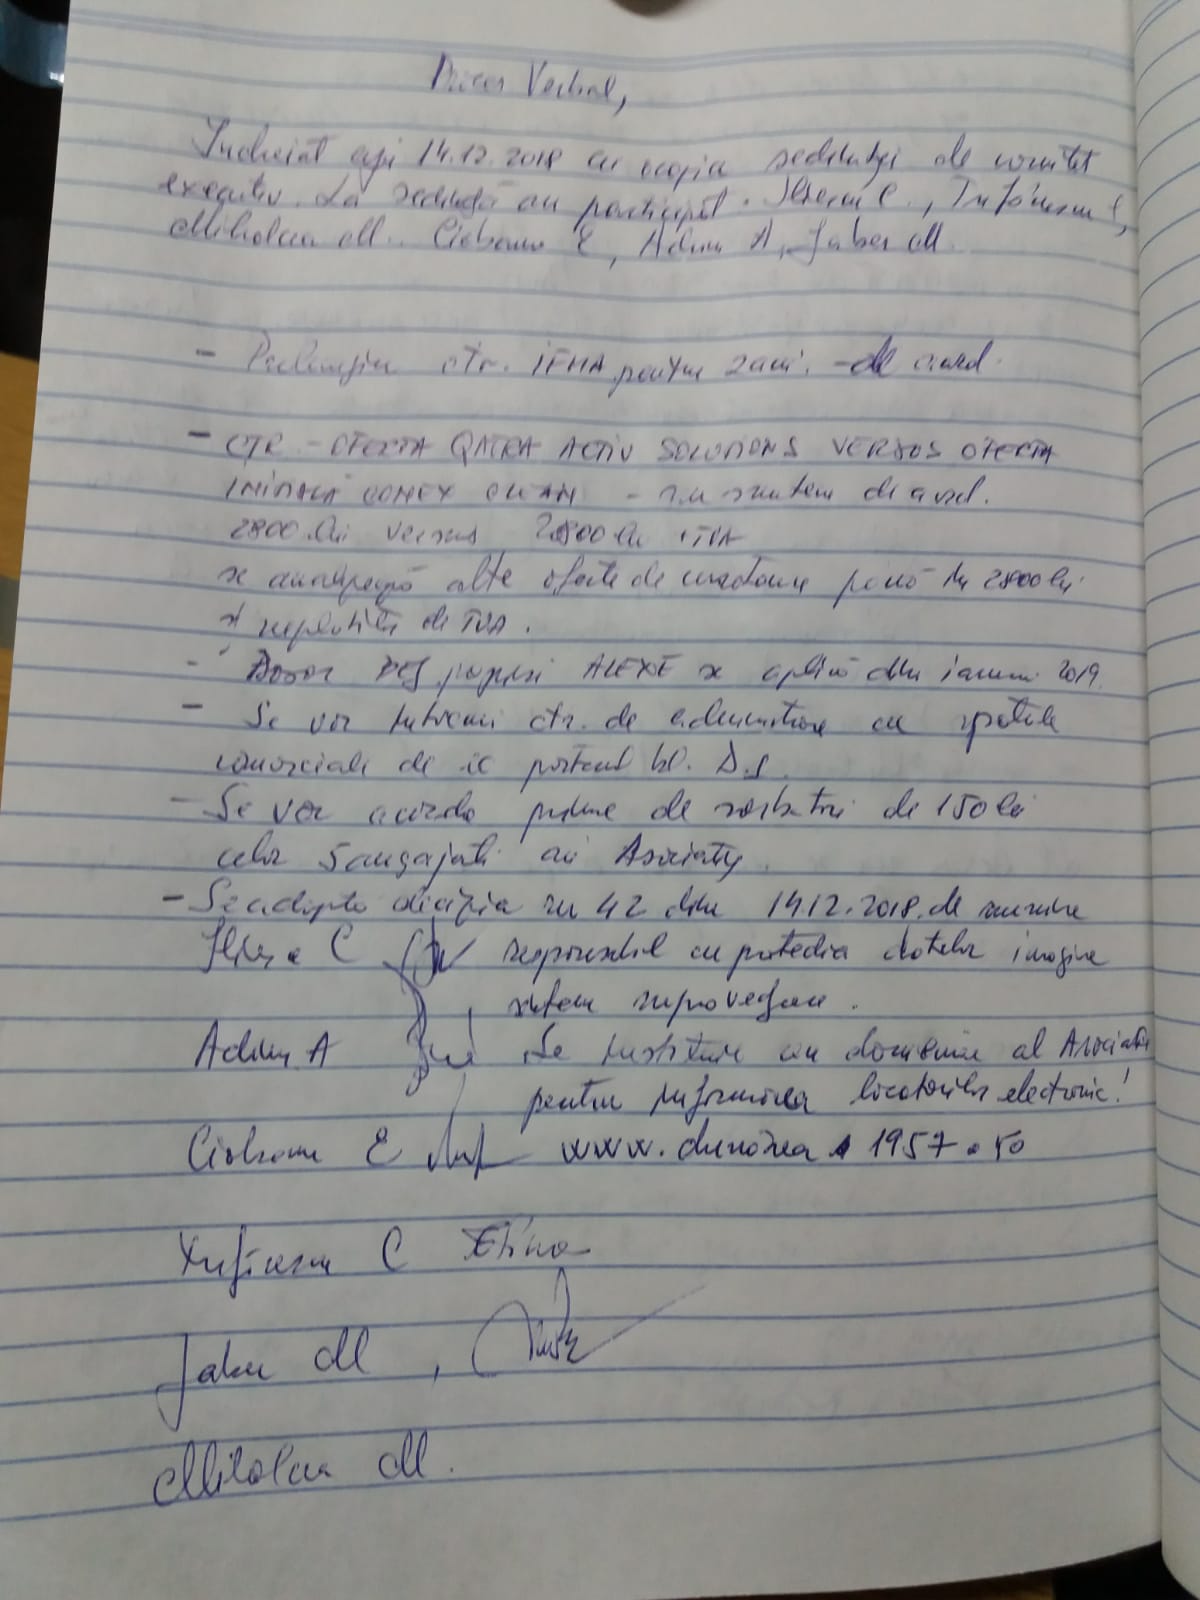 Proces Verbal,
Incheiat azi 14.12.2018 cu ocazia sedintei de comitet
executiv. La sedintă au participat. C., Tufănescu C,
Miholcea M. Ciobanu E, Adina A, Jaber M.
- Prelungire ctr. IFMA pentru 2 ani. - de acord.
- CTR - OFERTA ACTIV SOLUTIONS VERSUS OFERTA
COMEX CLEAN - nu suntem de acord.
2800 lei versus 2800 lei + TVA
se alte oferte de curatenie pană la 2800 lei
de TVA.
- ALEXE se aplică din ianuarie 2019.
- Se vor intocmi ctr. de administrare cu spatiile
comerciale de ic parterul bl. D.1
- Se vor acorda prime de sarbatori de 150 lei
celor 5 angajati ai Asociatiei.
- Se adopta decizia nr 42 din 14.12.2018. de numire
C responsabil cu protectia datelor imagine
sistem supraveghere.
Adina A Se instituie un domeniu al Asociatiei
pentru informarea locatorilor electronic!
Ciobanu E www.dunărea 1957.ro
C
Jaber M,
Miholcea M.